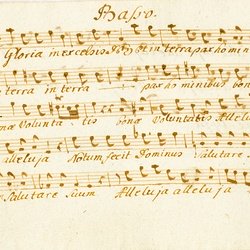 Basso.
Gloria in excelsis Deo et in terra pax homini
terra in terra pax hominibus bon
næ volunta tis bonæ voluntatis Alleluj
alleluja Notum fecit Dominus Salutare
Salutare suum Alleluja alleluja